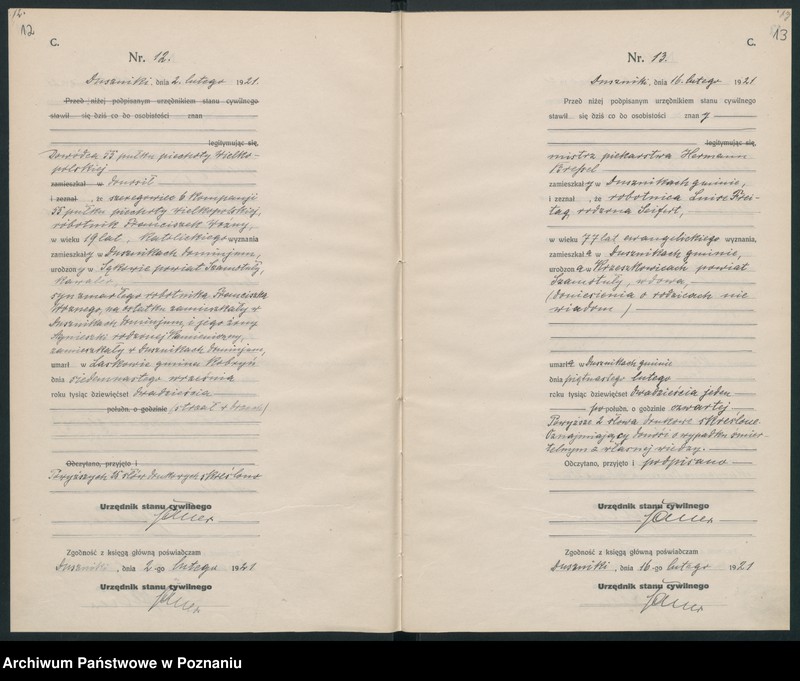 12.
12
C.
Nr. 12.
Duszniki, dnia 2. lutego 1921.
Przed niżej podpisanym urzędnikiem stanu cywilnego
stawił się dziś co do osobistości znan
legitymując się,
Dowódca 55 pułku piechoty Wielko-
polskiej
zamieszkał w doniósł
i zeznał , że szeregowiec 6. kompanji
55 pułku piechoty wielkopolskiej,
robotnik Franciszek Woźny,
w wieku 19 lat, katolickiego wyznania
zamieszkały w Dusznikach dominjum,
urodzony w powiat Szamotuły,
kawaler,
syn zmarłego robotnika Franciszka
Woźnego, na ostatku zamieszkały w
Dusznikach Dominjum, i jego żony
Agnieszki rodzonej
zamieszkały w Dusznikach Dominjum,
umarł w gmina
dnia siedemnastego września
roku tysiąc dziewięćset dwadzieścia
połudn. o godzinie (strzał w brzuch)
Odczytano, przyjęto i
Powyższych 15 słów drukowych skreślono
Urzędnik stanu cywilnego
Zgodność z księgą główną poświadczam
Duszniki, dnia 2-go lutego 1921
Urzędnik stanu cywilnego
13
13
C.
Nr. 13.
Duszniki, dnia 16. lutego 1921
Przed niżej podpisanym urzędnikiem stanu cywilnego
stawił się dziś co do osobistości znany
legitymując się,
mistrz piekarstwa Hermann
zamieszkały w Dusznikach gminie,
i zeznał , że robotnica Luise Frei-
tag rodzona Seifert,
w wieku 77 lat ewangelickiego wyznania,
zamieszkała w Dusznikach gminie,
urodzona w powiat
Szamotuły, wdowa,
(doniesienia o rodzicach nie
wiadom)
umarła w Dusznikach gminie
dnia piętnastego lutego
roku tysiąc dziewięćset dwadzieścia jeden
po połudn. o godzinie czwartej
Powyższe 2 słowa drukowe skreślone.
Oznajmiający doniósł o wypadku śmier-
telnym z własnej wiedzy.
Odczytano, przyjęto i podpisano
Urzędnik stanu cywilnego
Zgodność z księgą główną poświadczam
Duszniki, dnia 16-go lutego 1921
Urzędnik stanu cywilnego
Archiwum Państwowe w Poznaniu